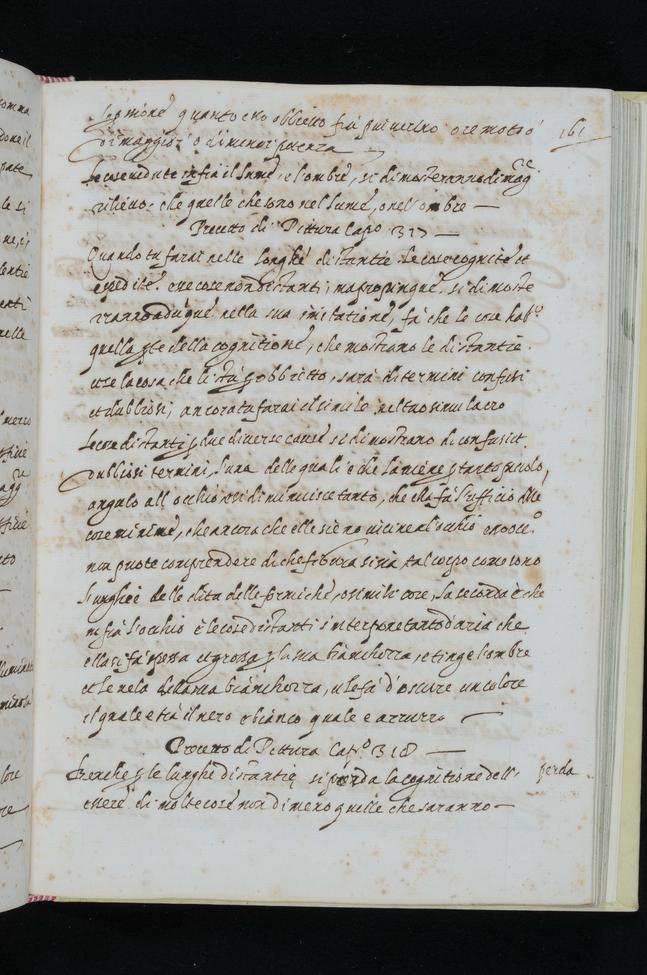 161
quanto esso obbietto fia piu vicino o remoto o
di maggior o di minor potenza
Le cose vedute infra il lume, e l'ombre, si dimosteranno di mag.re
rilievo, che quelle che sono nel lume, o nel ombre —
Precetto di Pittura Cap.o 317 —
Quando tu farai nelle longhe distantie le cose cognite et
espedite, esse cose non distanti ma propinque si dimoste
ranno adunque nella tua imitatione, fa che le cose hab.o
quella pte della cognitione, che mostrano le distantie
e se la cosa che ti sta p obbietto, sara di termini confusi
et dubbiosi, ancora tu farai il simile nel tuo simulacro
Le cose distanti p due diverse cause si dimostrano di confusi et
dubbiosi termini, l'una delle quali è che la viene p tanto picolo
angulo all'occhio, et si diminuisce tanto, che ella fa l'ufficio delle
cose minime, che ancora che elle sieno vicine al occhio esso oc.o
non puote comprendere di che figura si sia tal corpo come sono
l'unghie delle dita delle formiche, o simili cose, la seconda è che
infra l'occhio e le cose distanti s'interpone tanto d'aria che
ella si fa spessa et grossa, p la sua bianchezza, e tinge l'ombre
et le vela della sua bianchezza, et le fa d'oscure un colore
il quale è tra il nero e bianco quale è azzurro
Precetto di Pittura Cap.o 318 —
Benche p le lunghe distantie si perda la cognitione dell' perda
essere di molte cose non dimeno quelle che saranno —